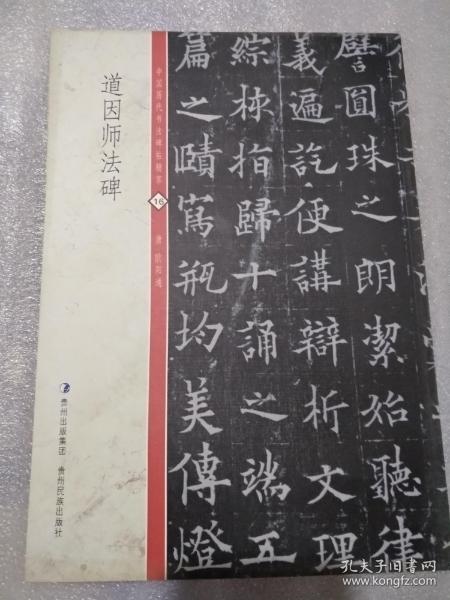 道因师法碑
中国历代书法碑帖精萃
16
唐 欧阳通
贵州出版集团 贵州民族出版社
譬圓珠之朗潔始聽律
義遍訖便講辯析文理
綜核指歸十誦之端五
篇之賾寫瓶均美傳燈
孔夫子旧书网
www.kongfz.com